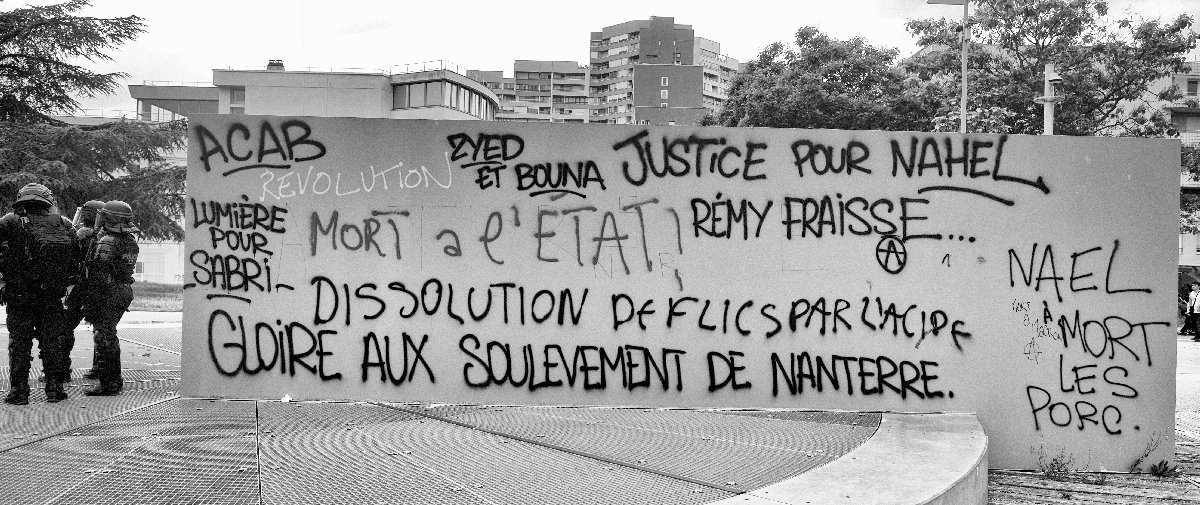 ACAB
REVOLUTION
ZYED
ET BOUNA
JUSTICE POUR NAHEL
LUMIÈRE
POUR
-SABRI-
MORT a l'ÉTAT!
RÉMY FRAISSE...
A
DISSOLUTION DE FLICS PAR L'ACIDE
GLOIRE AUX SOULEVEMENT DE NANTERRE.
NAEL
À MORT
LES
PORC.